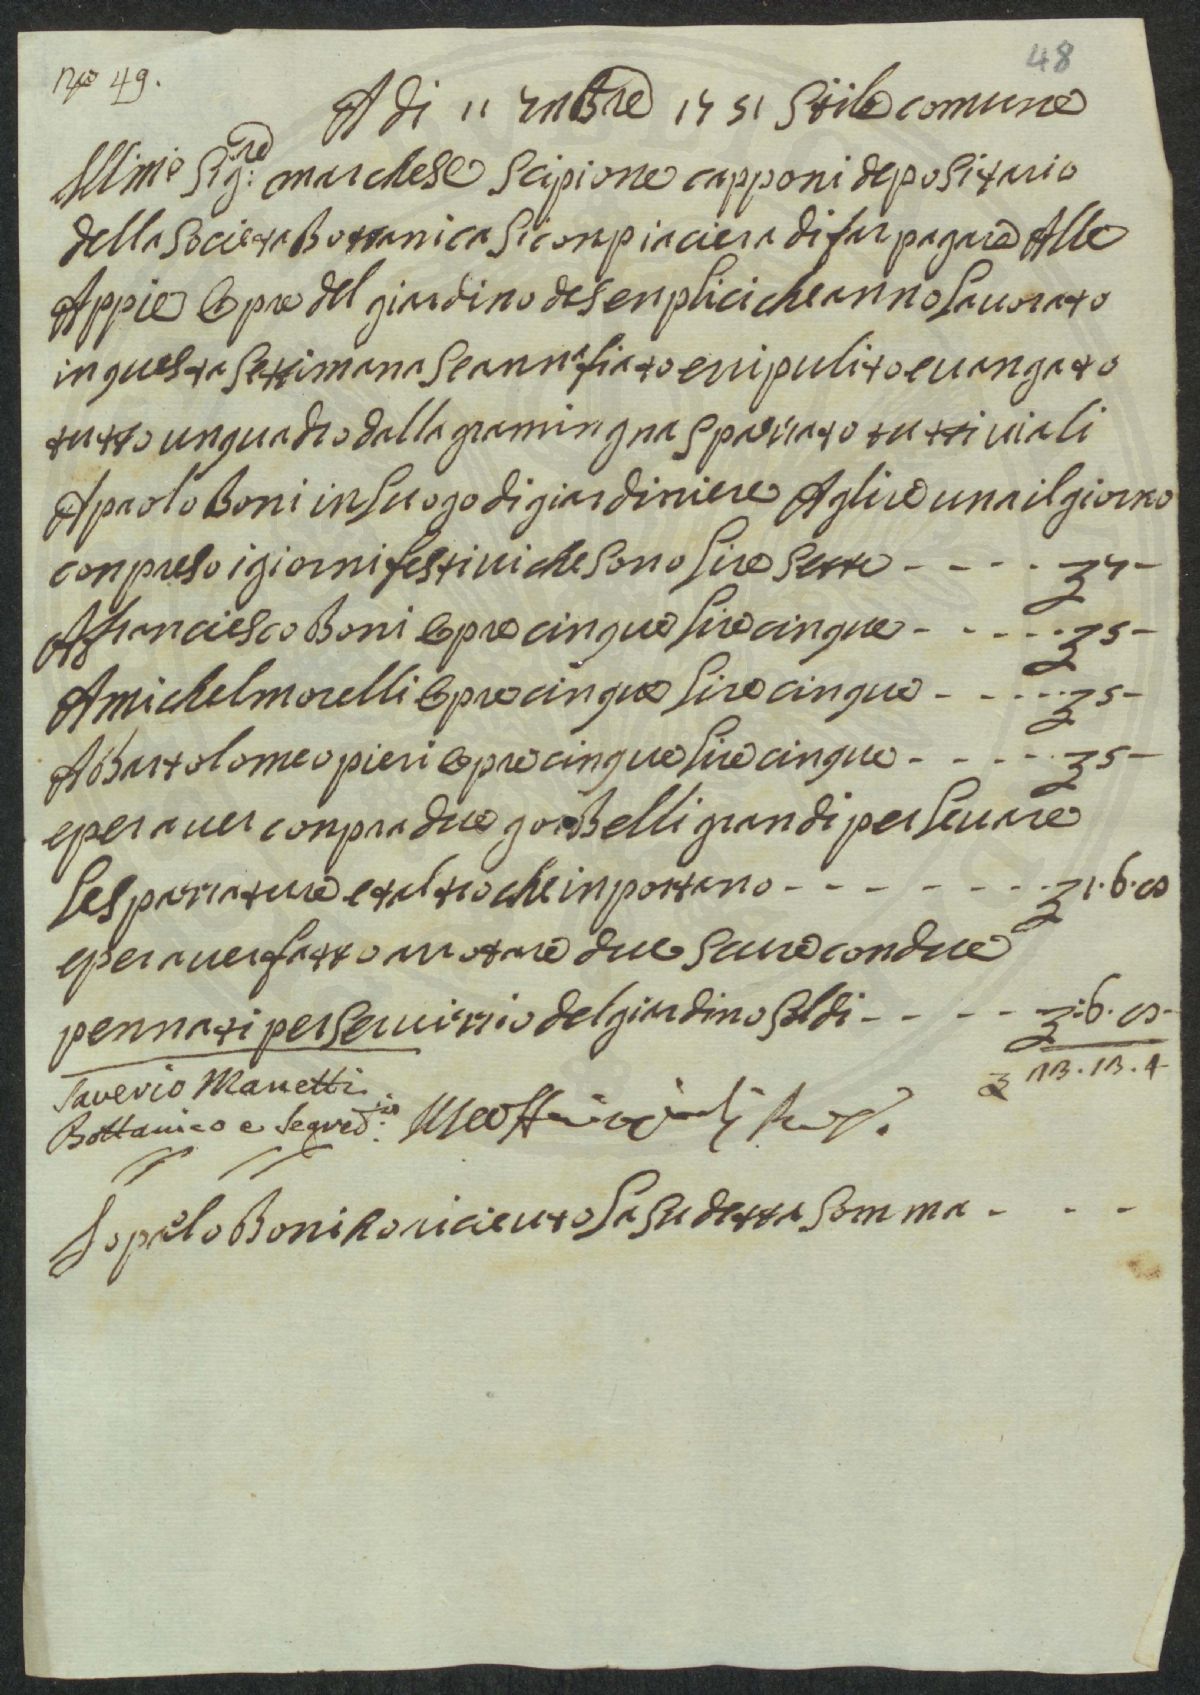 No 49.
48
A di 11 7mbre 1751 Stile comune
Illmo Sig:re marchese Scipione capponi depositario
della Societa Bottanica Si conpiaciera di far pagare Alle
Appie Opre del giardino de Senplici che anno Lavorato
in questa Settimana Se annafiato e ripulito e vangato
tutto un quadro dalla gramingna Sparrato tutti i viali
A paolo Boni in Luogo di giardiniere A glire una il giorno
conpreso i giorni festivi che Sono Lire Sette - - - - 7 -
A franciesco Boni Opre cinque Lire cinque - - - - 5 -
A michel morelli Opre cinque Lire cinque - - - - 5 -
A Bartolomeo pieri Opre cinque Lire cinque - - - - 5 -
e per aver conpra due gorBelli grandi per Levare
Le Sparrature et altro che inportano - - - - - - 1.6.8
e per aver fatto arrotare due Scure con due
pennati per Servirrio del giardino Soldi - - - - -.6.8-
13.13.4
Saverio Manetti
Bottanico e Segred:rio
Io paolo Boni ho ricievuto La Sudetta Somma - - -